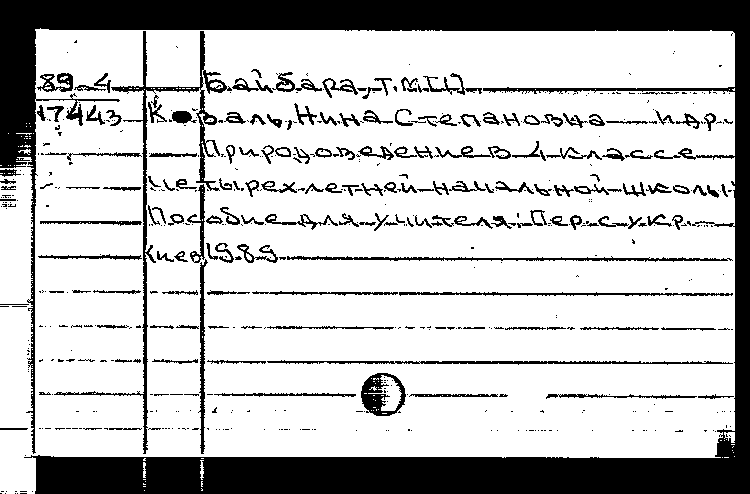 89-4 Байбара, Т.М.[1].
17443 Коваль, Нина Степановна и др.
Природоведение в 4 классе
четырехлетней начальной школы:
Пособие для учителя: Пер. с укр.
Киев, 1989